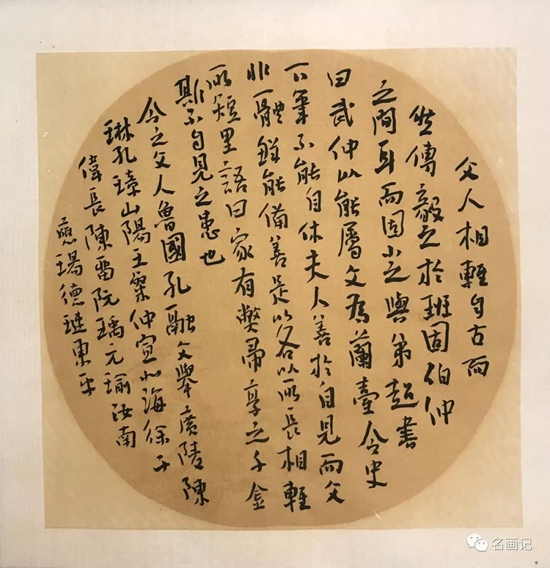 文人相輕自古而
然傅毅之於班固伯仲
之間耳而固小之與弟超書
曰武仲以能屬文為蘭臺令史
下筆不能自休夫人善於自見而文
非一體鮮能備善是以各以所長相輕
所短里語曰家有弊帚享之千金
斯不自見之患也
今之文人魯國孔融文舉廣陵陳
琳孔璋山陽王粲仲宣北海徐干
偉長陳留阮瑀元瑜汝南
應瑒德璉東平
名画记